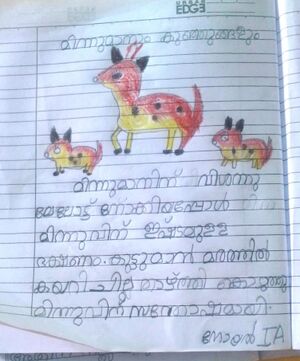 URBAN
EDGE
മിന്നുമാനും കുഞ്ഞുങ്ങളും
മിന്നുമാനിന് വിശന്നു
മേലോട്ട് നോക്കിയപ്പോൾ
മിന്നുവിന് ഇഷ്ടമുള്ള
ഭക്ഷണം. കുട്ടുമാൻ മരത്തിൽ
കയറി ചില്ല താഴ്ത്തി കൊടുത്തു
മിന്നുവിന് സന്തോഷമായി.
നോയൽ IA